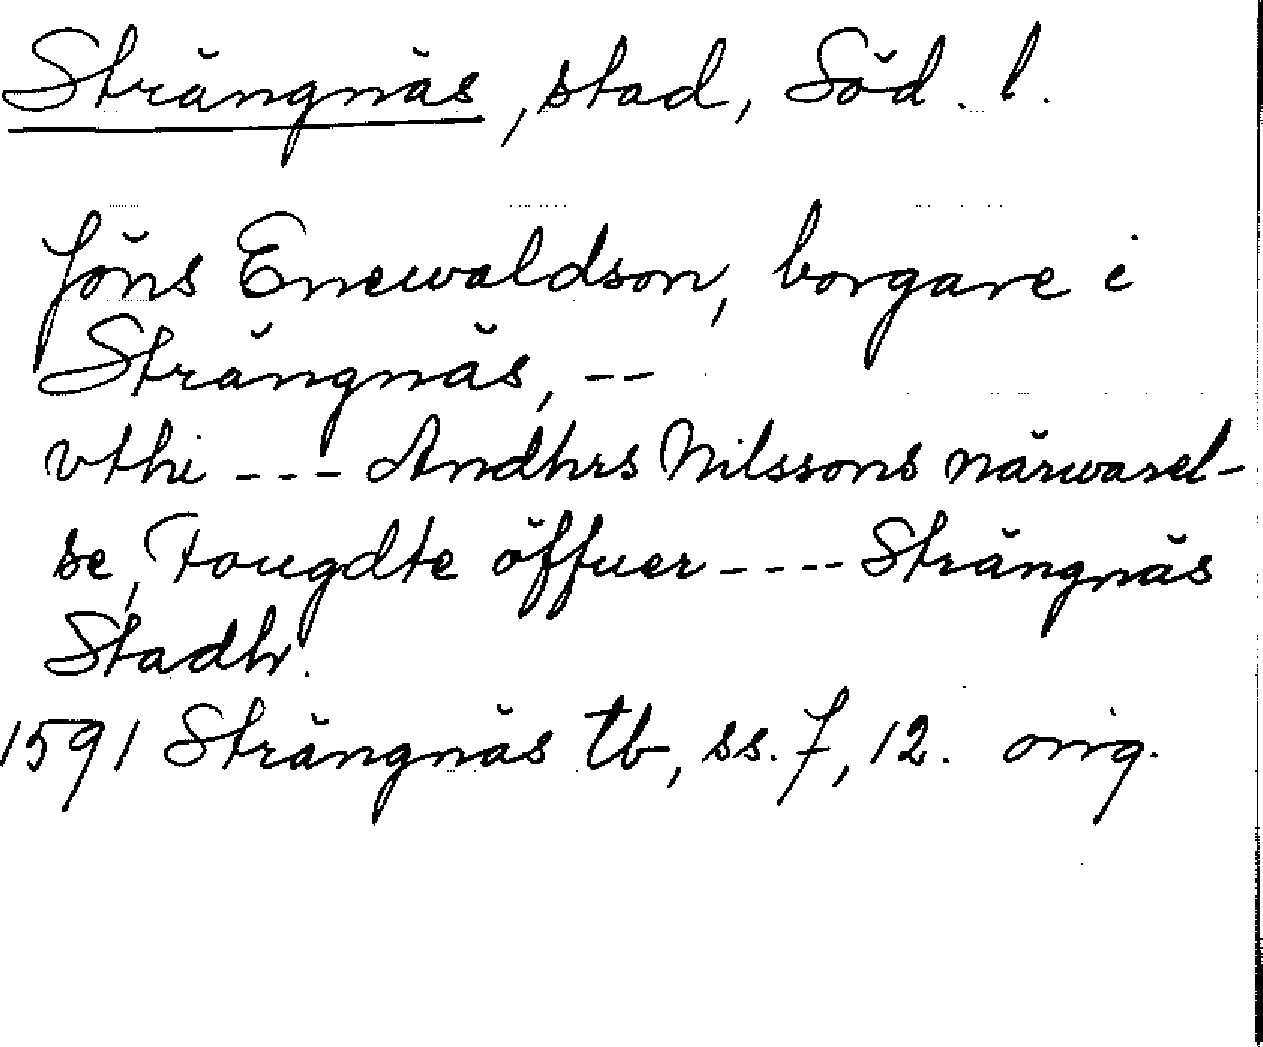 Strängnäs, stad, Söd. l.
Jöns Enewaldson, borgare i
Strängnäs, --
vthi --- Andhrs Nilssons närwarel-
se, Fougdte öffuer ---- Strängnäs
Stadh.
1591 Strängnäs tb, ss. 7, 12. orig.